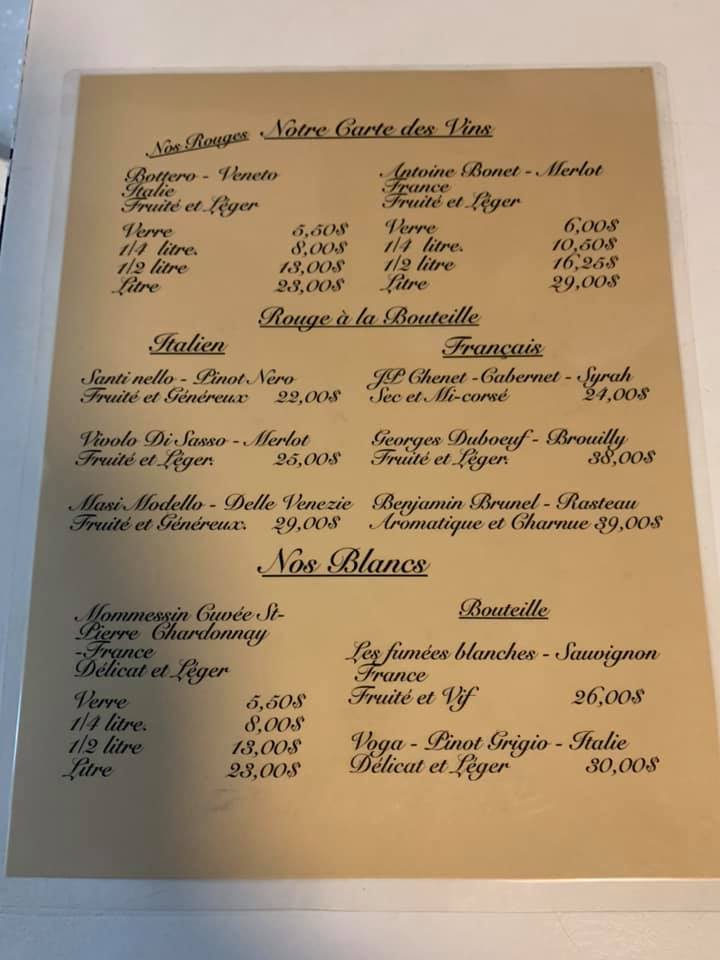 Notre Carte des Vins
Nos Rouges
Bottero - Veneto
Italie
Fruité et Léger
Verre 5,50$
1/4 litre. 8,00$
1/2 litre 13,00$
Litre 23,00$
Antoine Bonet - Merlot
France
Fruité et Léger
Verre 6,00$
1/4 litre. 10,50$
1/2 litre 16,25$
Litre 29,00$
Rouge à la Bouteille
Italien
Santi nello - Pinot Nero
Fruité et Généreux 22,00$
Vivolo Di Sasso - Merlot
Fruité et Léger. 25,00$
Masi Modello - Delle Venezie
Fruité et Généreux. 29,00$
Français
JP Chenet - Cabernet - Syrah
Sec et Mi-corsé 24,00$
Georges Duboeuf - Brouilly
Fruité et Léger. 38,00$
Benjamin Brunel - Rasteau
Aromatique et Charnue 39,00$
Nos Blancs
Mommessin Cuvée St-
Pierre Chardonnay
-France
Délicat et Léger
Verre 5,50$
1/4 litre. 8,00$
1/2 litre 13,00$
Litre 23,00$
Bouteille
Les fumées blanches - Sauvignon
France
Fruité et Vif 26,00$
Voga - Pinot Grigio - Italie
Délicat et Léger 30,00$